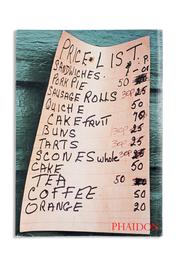 PRICE LIST
SANDWICHES.
PORK PIE 50
SAUSAGE ROLLS 30P 25
QUICHE 50
CAKE FRUIT
BUNS 30P 25
TARTS
SCONES whole 30P
CAKE 50
TEA 50
COFFEE 50
ORANGE 20
PHAIDON